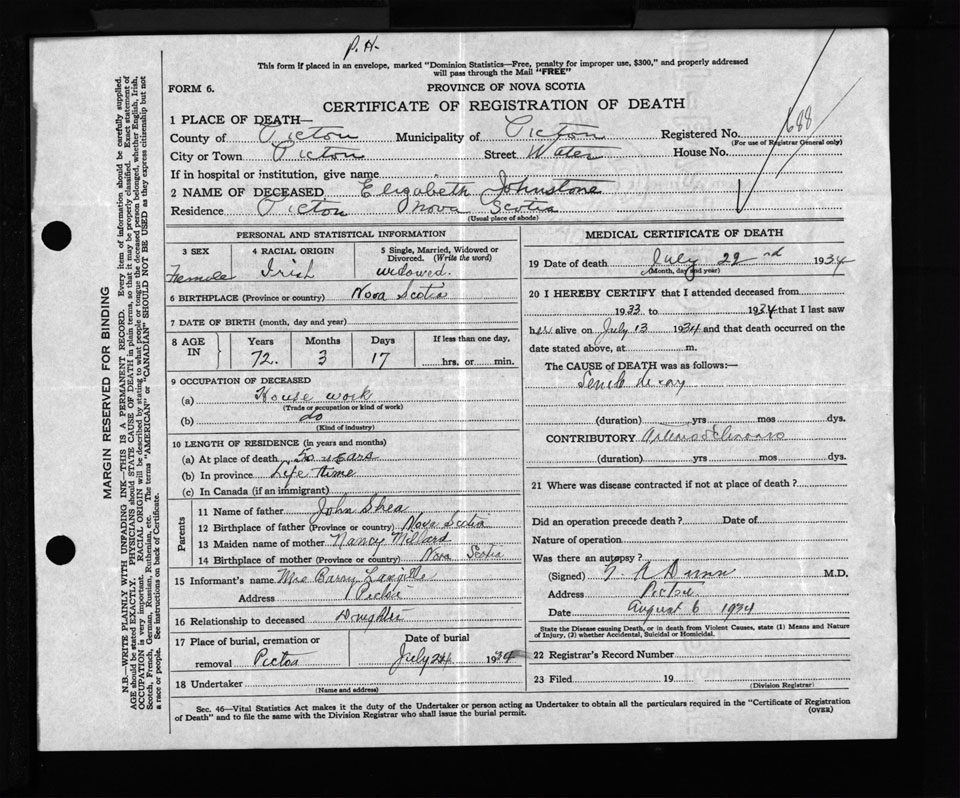 P.H.
This form if placed in an envelope, marked "Dominion Statistics—Free, penalty for improper use, $300," and properly addressed
will pass through the Mail "FREE"
FORM 6.
PROVINCE OF NOVA SCOTIA
CERTIFICATE OF REGISTRATION OF DEATH
1 PLACE OF DEATH—
County of Pictou Municipality of Pictou Registered No. 688
(For use of Registrar General only)
City or Town Pictou Street Water House No.
If in hospital or institution, give name
2 NAME OF DECEASED Elizabeth Johnstone
Residence Pictou Nova Scotia
(Usual place of abode)
PERSONAL AND STATISTICAL INFORMATION
3 SEX Female
4 RACIAL ORIGIN Irish
5 Single, Married, Widowed or Divorced. (Write the word) widowed.
6 BIRTHPLACE (Province or country) Nova Scotia
7 DATE OF BIRTH (month, day and year)
8 AGE IN Years Months Days If less than one day,
72. 3 17 hrs. or min.
9 OCCUPATION OF DECEASED
(a) House work
(Trade or occupation or kind of work)
(b) do
(Kind of industry)
10 LENGTH OF RESIDENCE (in years and months)
(a) At place of death 50 years
(b) In province Life time
(c) In Canada (if an immigrant)
Parents
11 Name of father John Shea
12 Birthplace of father (Province or country) Nova Scotia
13 Maiden name of mother Nancy Millard
14 Birthplace of mother (Province or country) Nova Scotia
15 Informant's name Mrs Barry Langille
Address Pictou
16 Relationship to deceased Daughter
17 Place of burial, cremation or removal Pictou
Date of burial July 24 1934
18 Undertaker
(Name and address)
MEDICAL CERTIFICATE OF DEATH
19 Date of death July 22nd 1934
(Month, day and year)
20 I HEREBY CERTIFY that I attended deceased from
1933 to 1934 that I last saw
her alive on July 13 1934 and that death occurred on
date stated above, at m.
The CAUSE of DEATH was as follows:—
Senile decay
(duration) yrs mos dys.
CONTRIBUTORY Arteriosclerosis
(duration) yrs mos dys.
21 Where was disease contracted if not at place of death?
Did an operation precede death? Date of
Nature of operation
Was there an autopsy?
(Signed) Dunn M.D.
Address Pictou
Date August 6 1934
State the Disease causing Death, or in death from Violent Causes, state (1) Means and Nature
of Injury, (2) whether Accidental, Suicidal or Homicidal.
22 Registrar's Record Number
23 Filed 19
(Division Registrar)
Sec. 46—Vital Statistics Act makes it the duty of the Undertaker or person acting as Undertaker to obtain all the particulars required in the "Certificate of Registration
of Death" and to file the same with the Division Registrar who shall issue the burial permit.
(OVER)
MARGIN RESERVED FOR BINDING
N.B.—WRITE PLAINLY WITH UNFADING INK—THIS IS A PERMANENT RECORD. Every item of information should be carefully supplied.
AGE should be stated EXACTLY. PHYSICIANS should STATE CAUSE OF DEATH in plain terms, so that it may be properly classified. Exact statement of
OCCUPATION is very important. RACIAL ORIGIN will be described by stating to what people or tongue the deceased person belonged, whether English, Irish,
Scotch, French, German, Russian, Ruthenian, etc. The terms "AMERICAN" or "CANADIAN" SHOULD NOT BE USED as they express citizenship but not
a race or people. See instructions on back of Certificate.